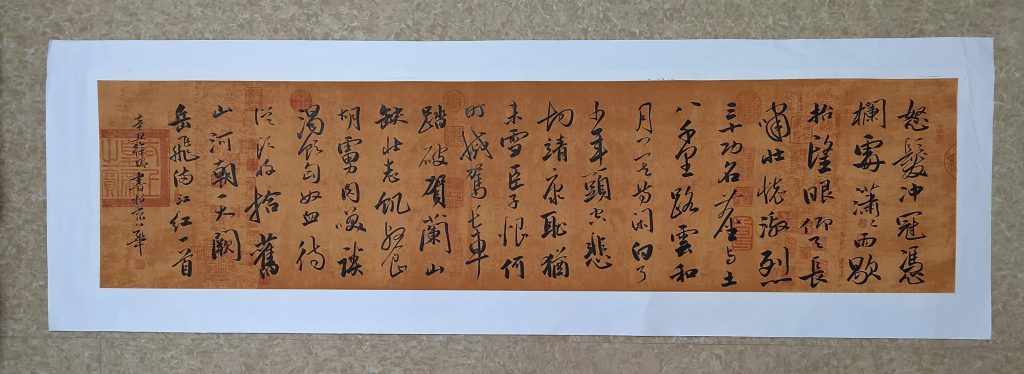 怒髮冲冠憑
欄處瀟々雨歇
抬望眼仰天長
嘯壮懷激烈
三十功名塵与土
八千里路雲和
月莫等閑白了
少年頭空悲
切靖康耻猶
未雪臣子恨何
时滅駕长車
踏破賀蘭山
缺壮志飢餐
胡虜肉笑談
渴飲匈奴血待
從頭收拾舊
山河朝天闕
岳飛满江红一首
書於京華